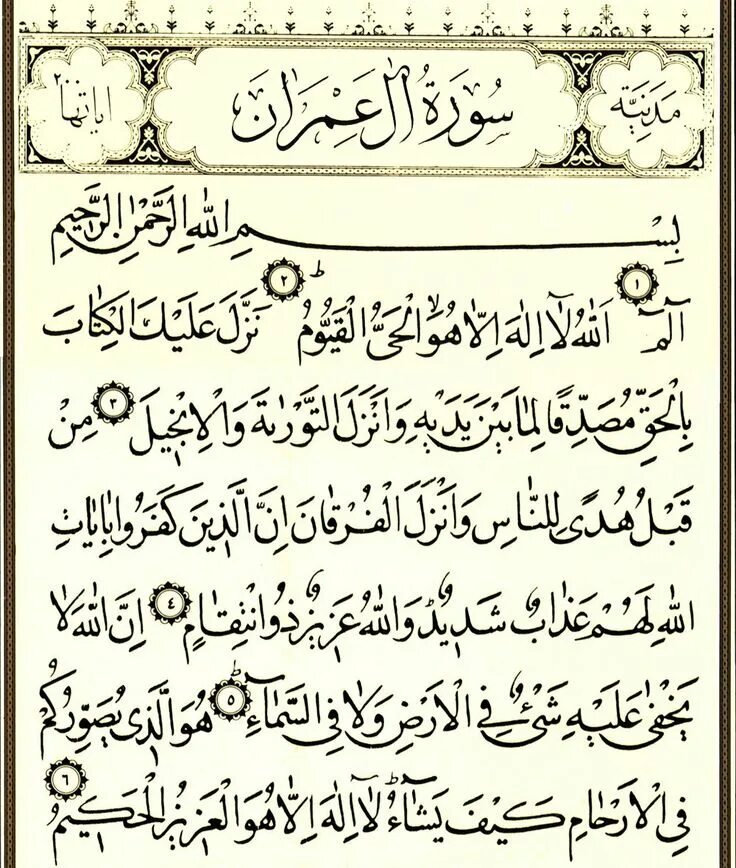 مَدَنِيَّة سُورَةُ اٰلِ عِمْرَانَ اياتها ٢٠٠
بِسْمِ اللّٰهِ الرَّحْمٰنِ الرَّح۪يمِ
الٓمٓ ١ اَللّٰهُ لَٓا اِلٰهَ اِلَّا هُوَۙ الْحَيُّ الْقَيُّومُۜ ٢ نَزَّلَ عَلَيْكَ الْكِتَابَ
بِالْحَقِّ مُصَدِّقًا لِمَا بَيْنَ يَدَيْهِ وَاَنْزَلَ التَّوْرٰيةَ وَالْاِنْج۪يلَ ٣ مِنْ
قَبْلُ هُدًى لِلنَّاسِ وَاَنْزَلَ الْفُرْقَانَ اِنَّ الَّذ۪ينَ كَفَرُوا بِاٰيَاتِ
اللّٰهِ لَهُمْ عَذَابٌ شَد۪يدٌ وَاللّٰهُ عَز۪يزٌ ذُوانْتِقَامٍ ٤ اِنَّ اللّٰهَ لَا
يَخْفٰى عَلَيْهِ شَيْءٌ فِي الْاَرْضِ وَلَا فِي السَّمَٓاءِۜ ٥ هُوَ الَّذ۪ي يُصَوِّرُكُمْ
فِي الْاَرْحَامِ كَيْفَ يَشَٓاءُۜ لَٓا اِلٰهَ اِلَّا هُوَ الْعَز۪يزُ الْحَك۪يمُ ٦